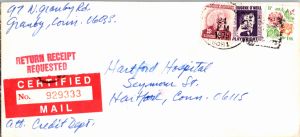 97 N. Granby Rd.
Granby, Conn. 06035.
RETURN RECEIPT
REQUESTED
CERTIFIED
No. 929333
MAIL
Hartford Hospital
Seymour St.
Hartford, Conn. 06115
Att. Credit Dept.
EUGENE O'NEILL
PLAYWRIGHT